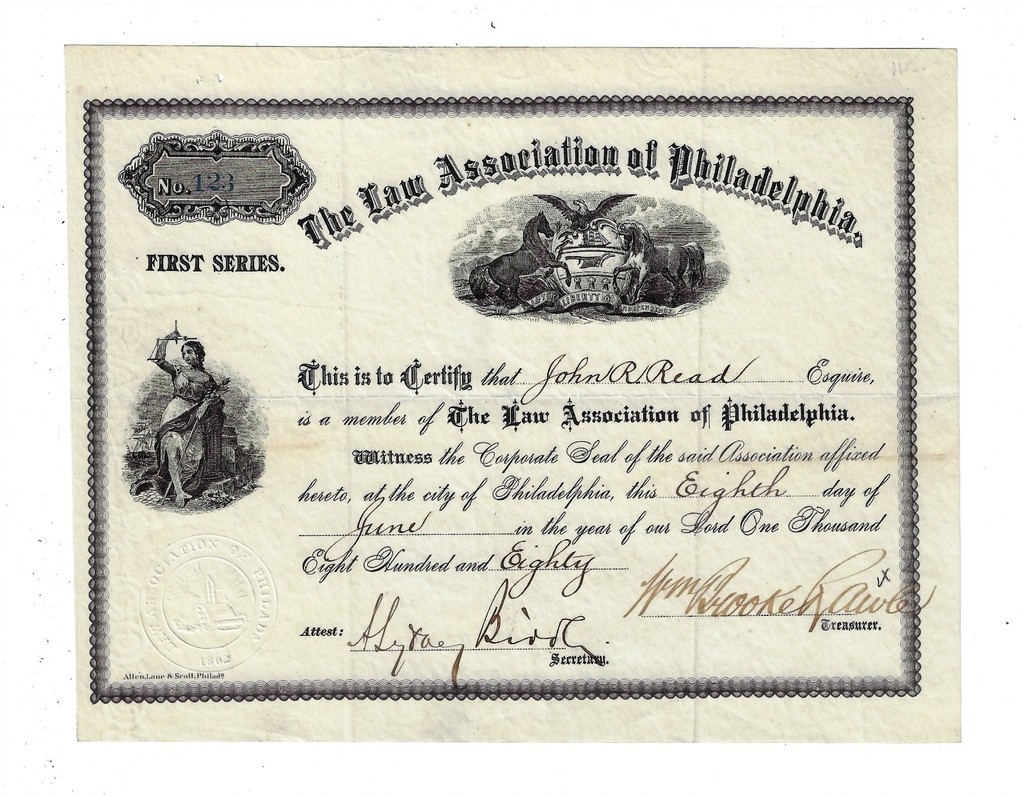 No. 123
FIRST SERIES.
The Law Association of Philadelphia.
LIBERTY
INDEPENDENCE
This is to Certify that John R. Read Esquire,
is a member of The Law Association of Philadelphia.
Witness the Corporate Seal of the said Association affixed
hereto, at the city of Philadelphia, this Eighth day of
June in the year of our Lord One Thousand
Eight Hundred and Eighty
Wm Brooke Rawle
Treasurer.
Attest: A Sydney Biddle
Secretary.
LAW ASSOCIATION OF PHILADA
Allen, Lane & Scott, Philada.